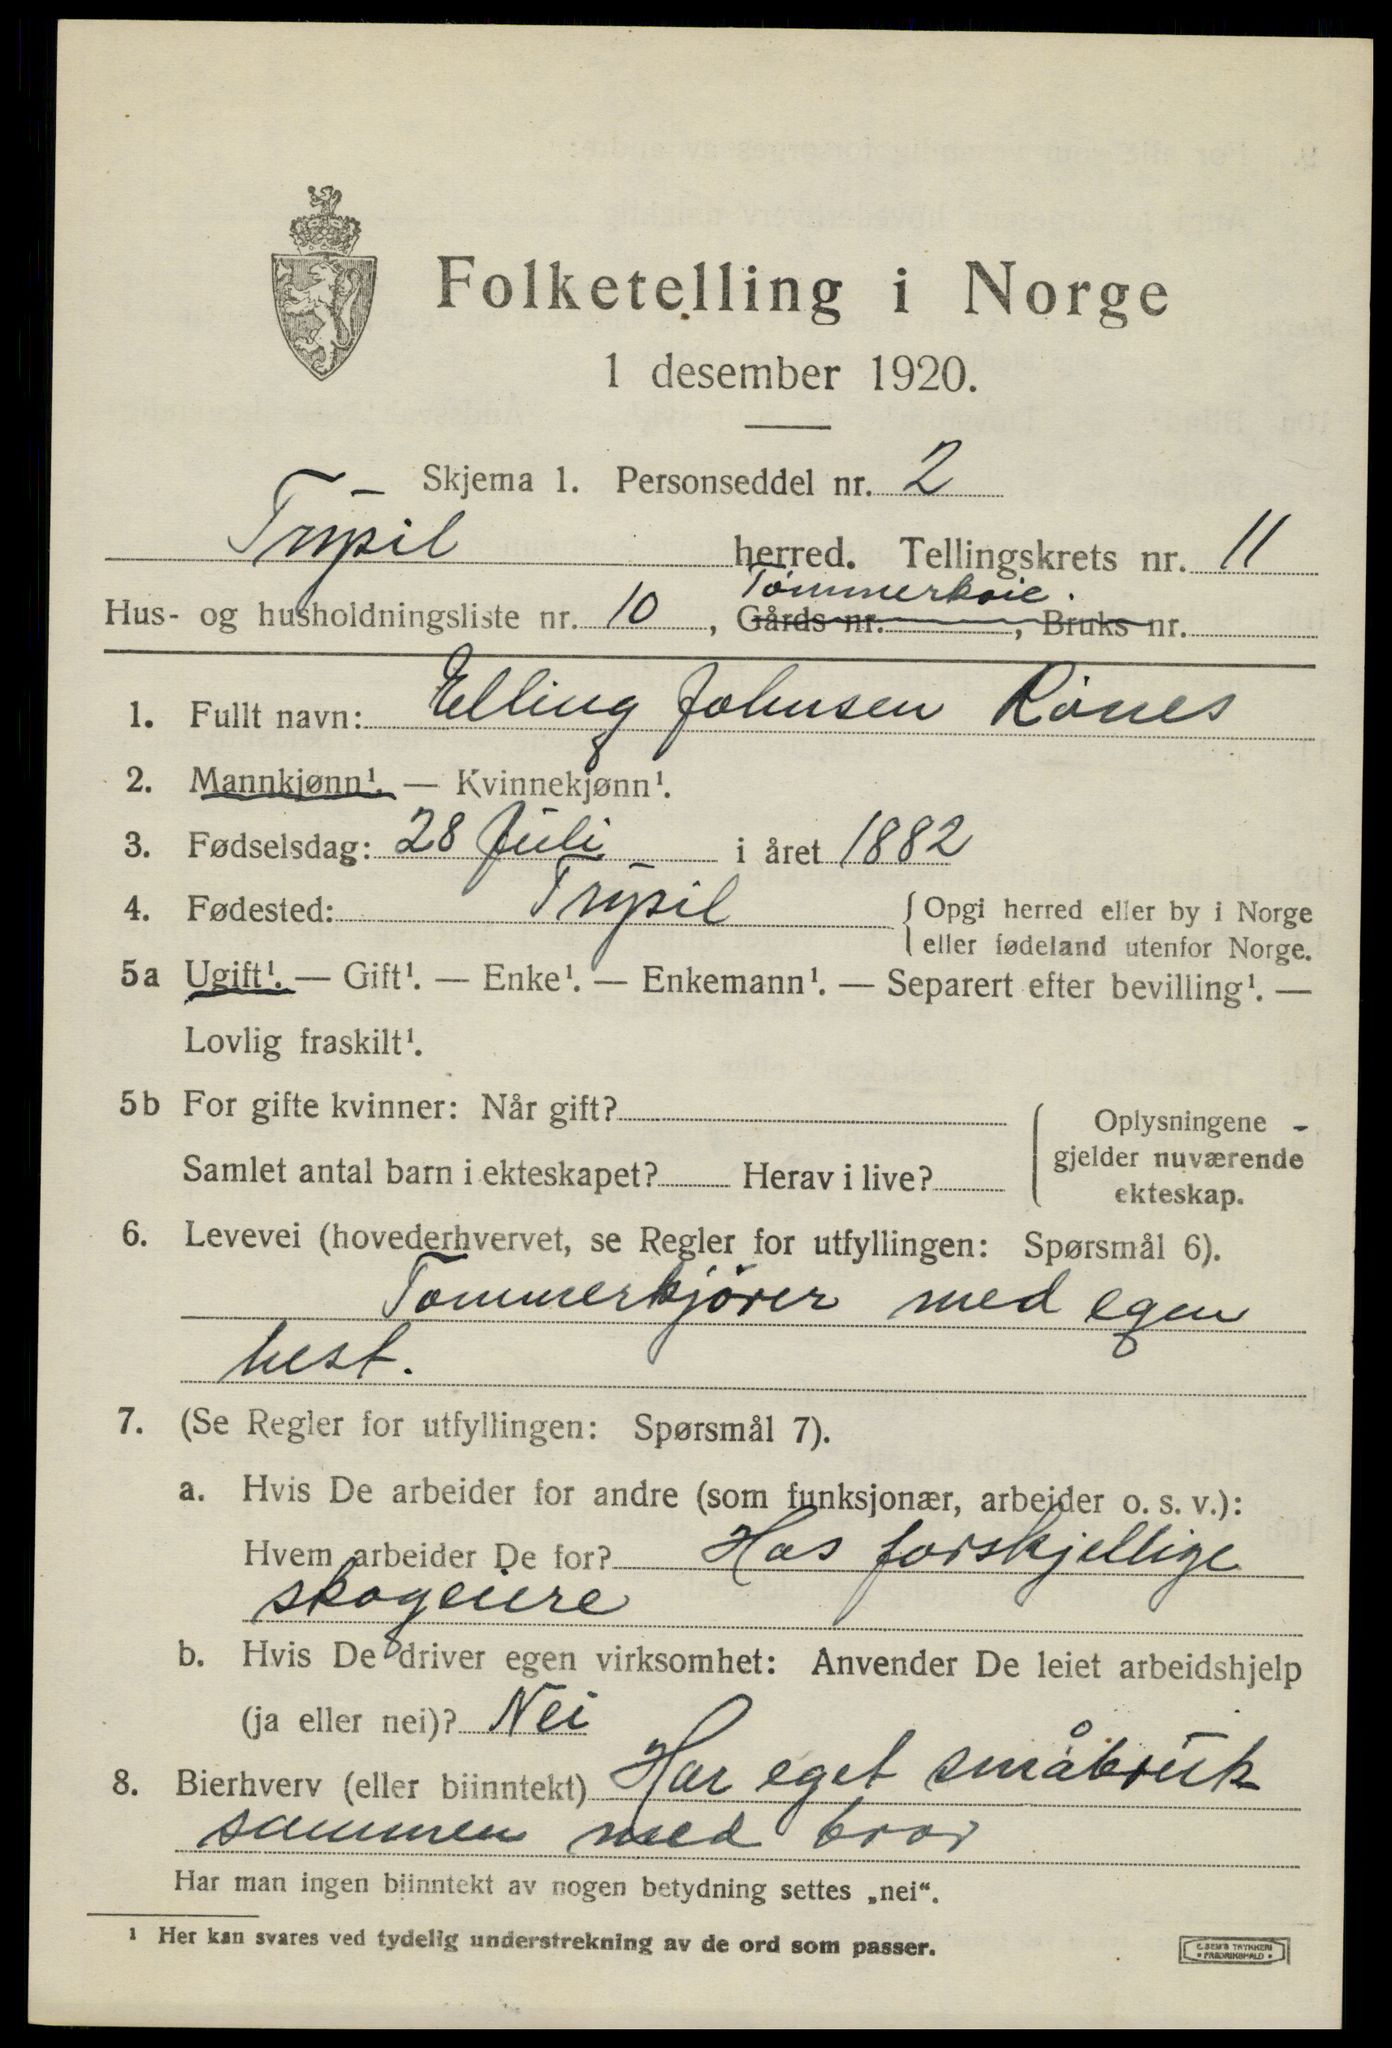 Folketelling i Norge
1 desember 1920.
Skjema 1. Personseddel nr. 2
Trysil herred. Tellingskrets nr. 11
Tømmerkoie.
Hus- og husholdningsliste nr. 10, Gårds nr. , Bruks nr.
1. Fullt navn: Elling Johnsen Rönes
2. Mannkjønn¹. — Kvinnekjønn¹.
3. Fødselsdag: 28 Juli i året 1882
4. Fødested: Trysil { Opgi herred eller by i Norge
eller fødeland utenfor Norge.
5a Ugift¹. — Gift¹. — Enke¹. — Enkemann¹. — Separert efter bevilling¹. —
Lovlig fraskilt¹.
5b For gifte kvinner: Når gift? { Oplysningene
gjelder nuværende
Samlet antal barn i ekteskapet? Herav i live? ekteskap.
6. Levevei (hovederhvervet, se Regler for utfyllingen: Spørsmål 6).
Tømmerkjører med egen
hest.
7. (Se Regler for utfyllingen: Spørsmål 7).
a. Hvis De arbeider for andre (som funksjonær, arbeider o. s. v.):
Hvem arbeider De for? Hos forskjellige
skogeiere
b. Hvis De driver egen virksomhet: Anvender De leiet arbeidshjelp
(ja eller nei)? Nei
8. Bierhverv (eller biinntekt) Har eget småbruk
sammen med bror
Har man ingen biinntekt av nogen betydning settes „nei“.
¹ Her kan svares ved tydelig understrekning av de ord som passer.
E. SEM'S TRYKKERI
• FREDRIKSHALD •